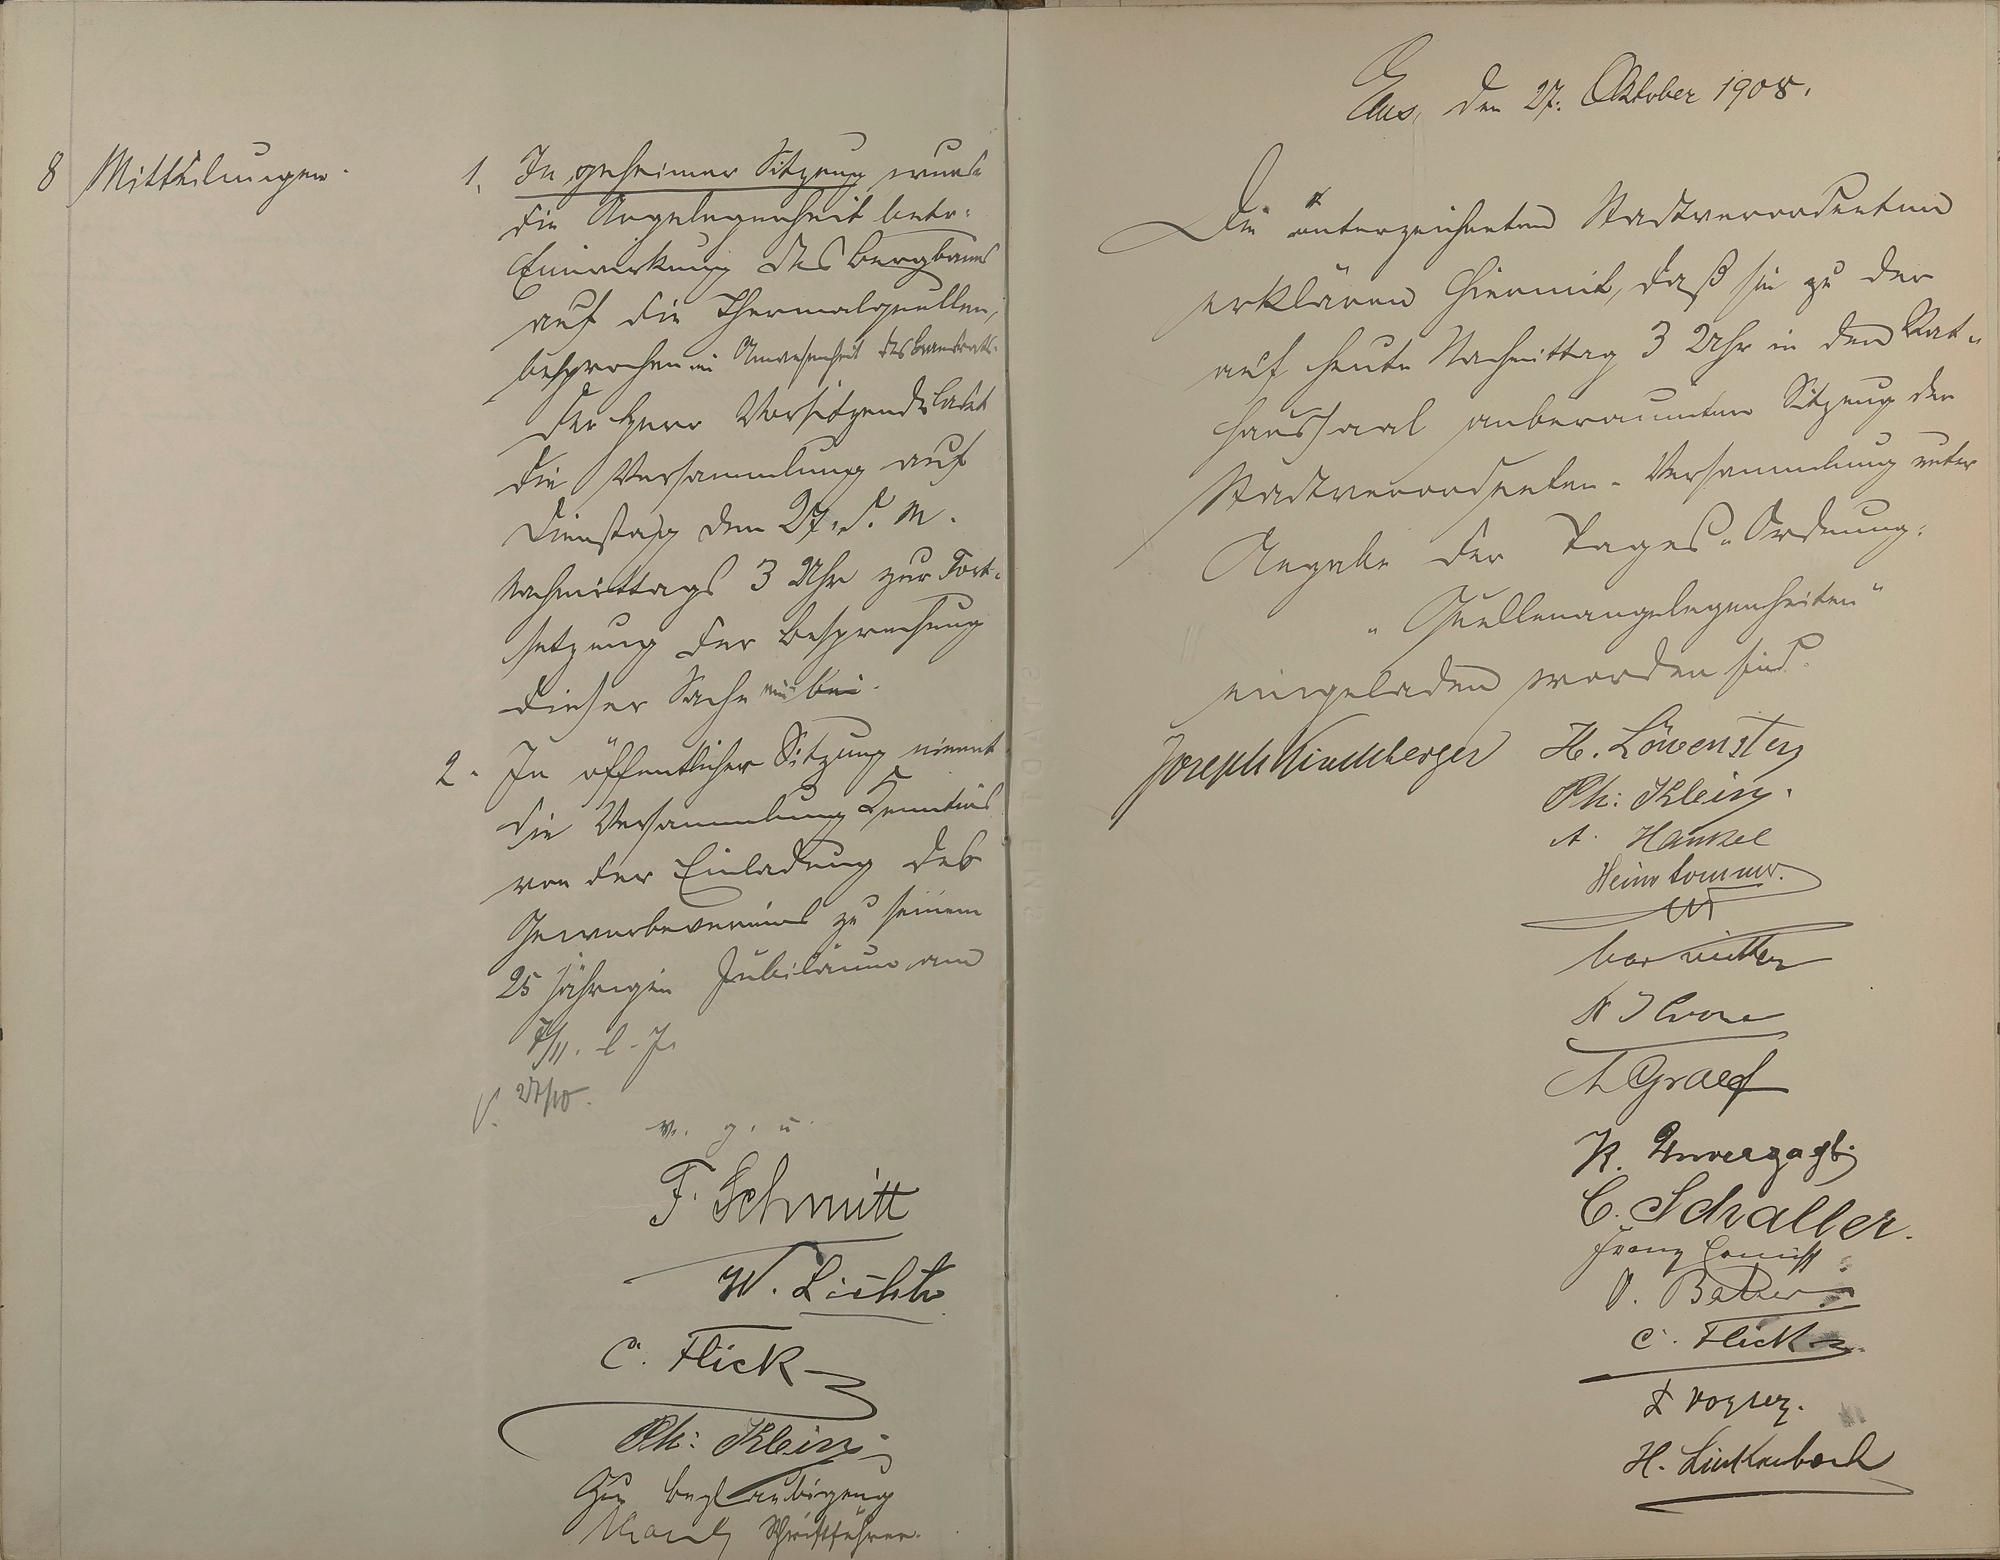 8 Mittheilungen.
1. In geheimer Sitzung wurde
die Angelegenheit betr:
Einwirkung des Bergbaues
auf die Thermalquellen,
besprochen in Anwesenheit des Landrats.
Der Herr Vorsitzende ladet
die Versammlung auf
Dienstag den 27. d. M.
Nachmittags 3 Uhr zur Fort-
setzung der Besprechung
dieser Sache
2. In öffentlicher Sitzung nimmt
die Versammlung Kenntnis
von der Einladung des
Gewerbevereins zu seinem
25 jährigen Jubiläum am
7/11. l. J.
V. 27/10.
v. g. u.
F. Schmitt
W. Licht
C. Flick
Ph: Klein
Zur Beglaubigung
Schriftführer.
Ems, den 27. Oktober 1908.
Die unterzeichneten Stadtverordneten
erklären hiermit, daß sie zu der
auf heute Nachmittag 3 Uhr in den Rat-
haussaal anberaumten Sitzung der
Stadtverordneten-Versammlung unter
Angabe der Tages-Ordnung:
"Quellenangelegenheiten"
eingeladen worden sind.
Joseph Kirchberger H. Löwenstein
Ph: Klein.
A. Hankel
Heinr Sommer.
A Graef
K. Unverzagt.
C. Schaller.
O. Balzer
C. Flick
H. Linkenbach